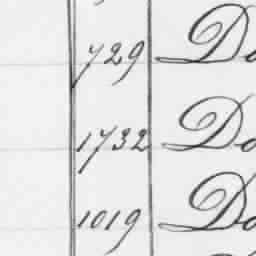 729 Do
1732 Do
1019 Do